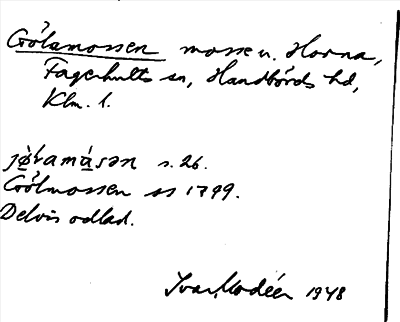 Gölamossen mosse u. Horna,
Fagerhults sn, Handbörds hd,
Klm. l.
jø̀ɫamàsən s. 26.
Gölmossen ss 1799.
Delvis odlad.
Ivar Modéer 1948